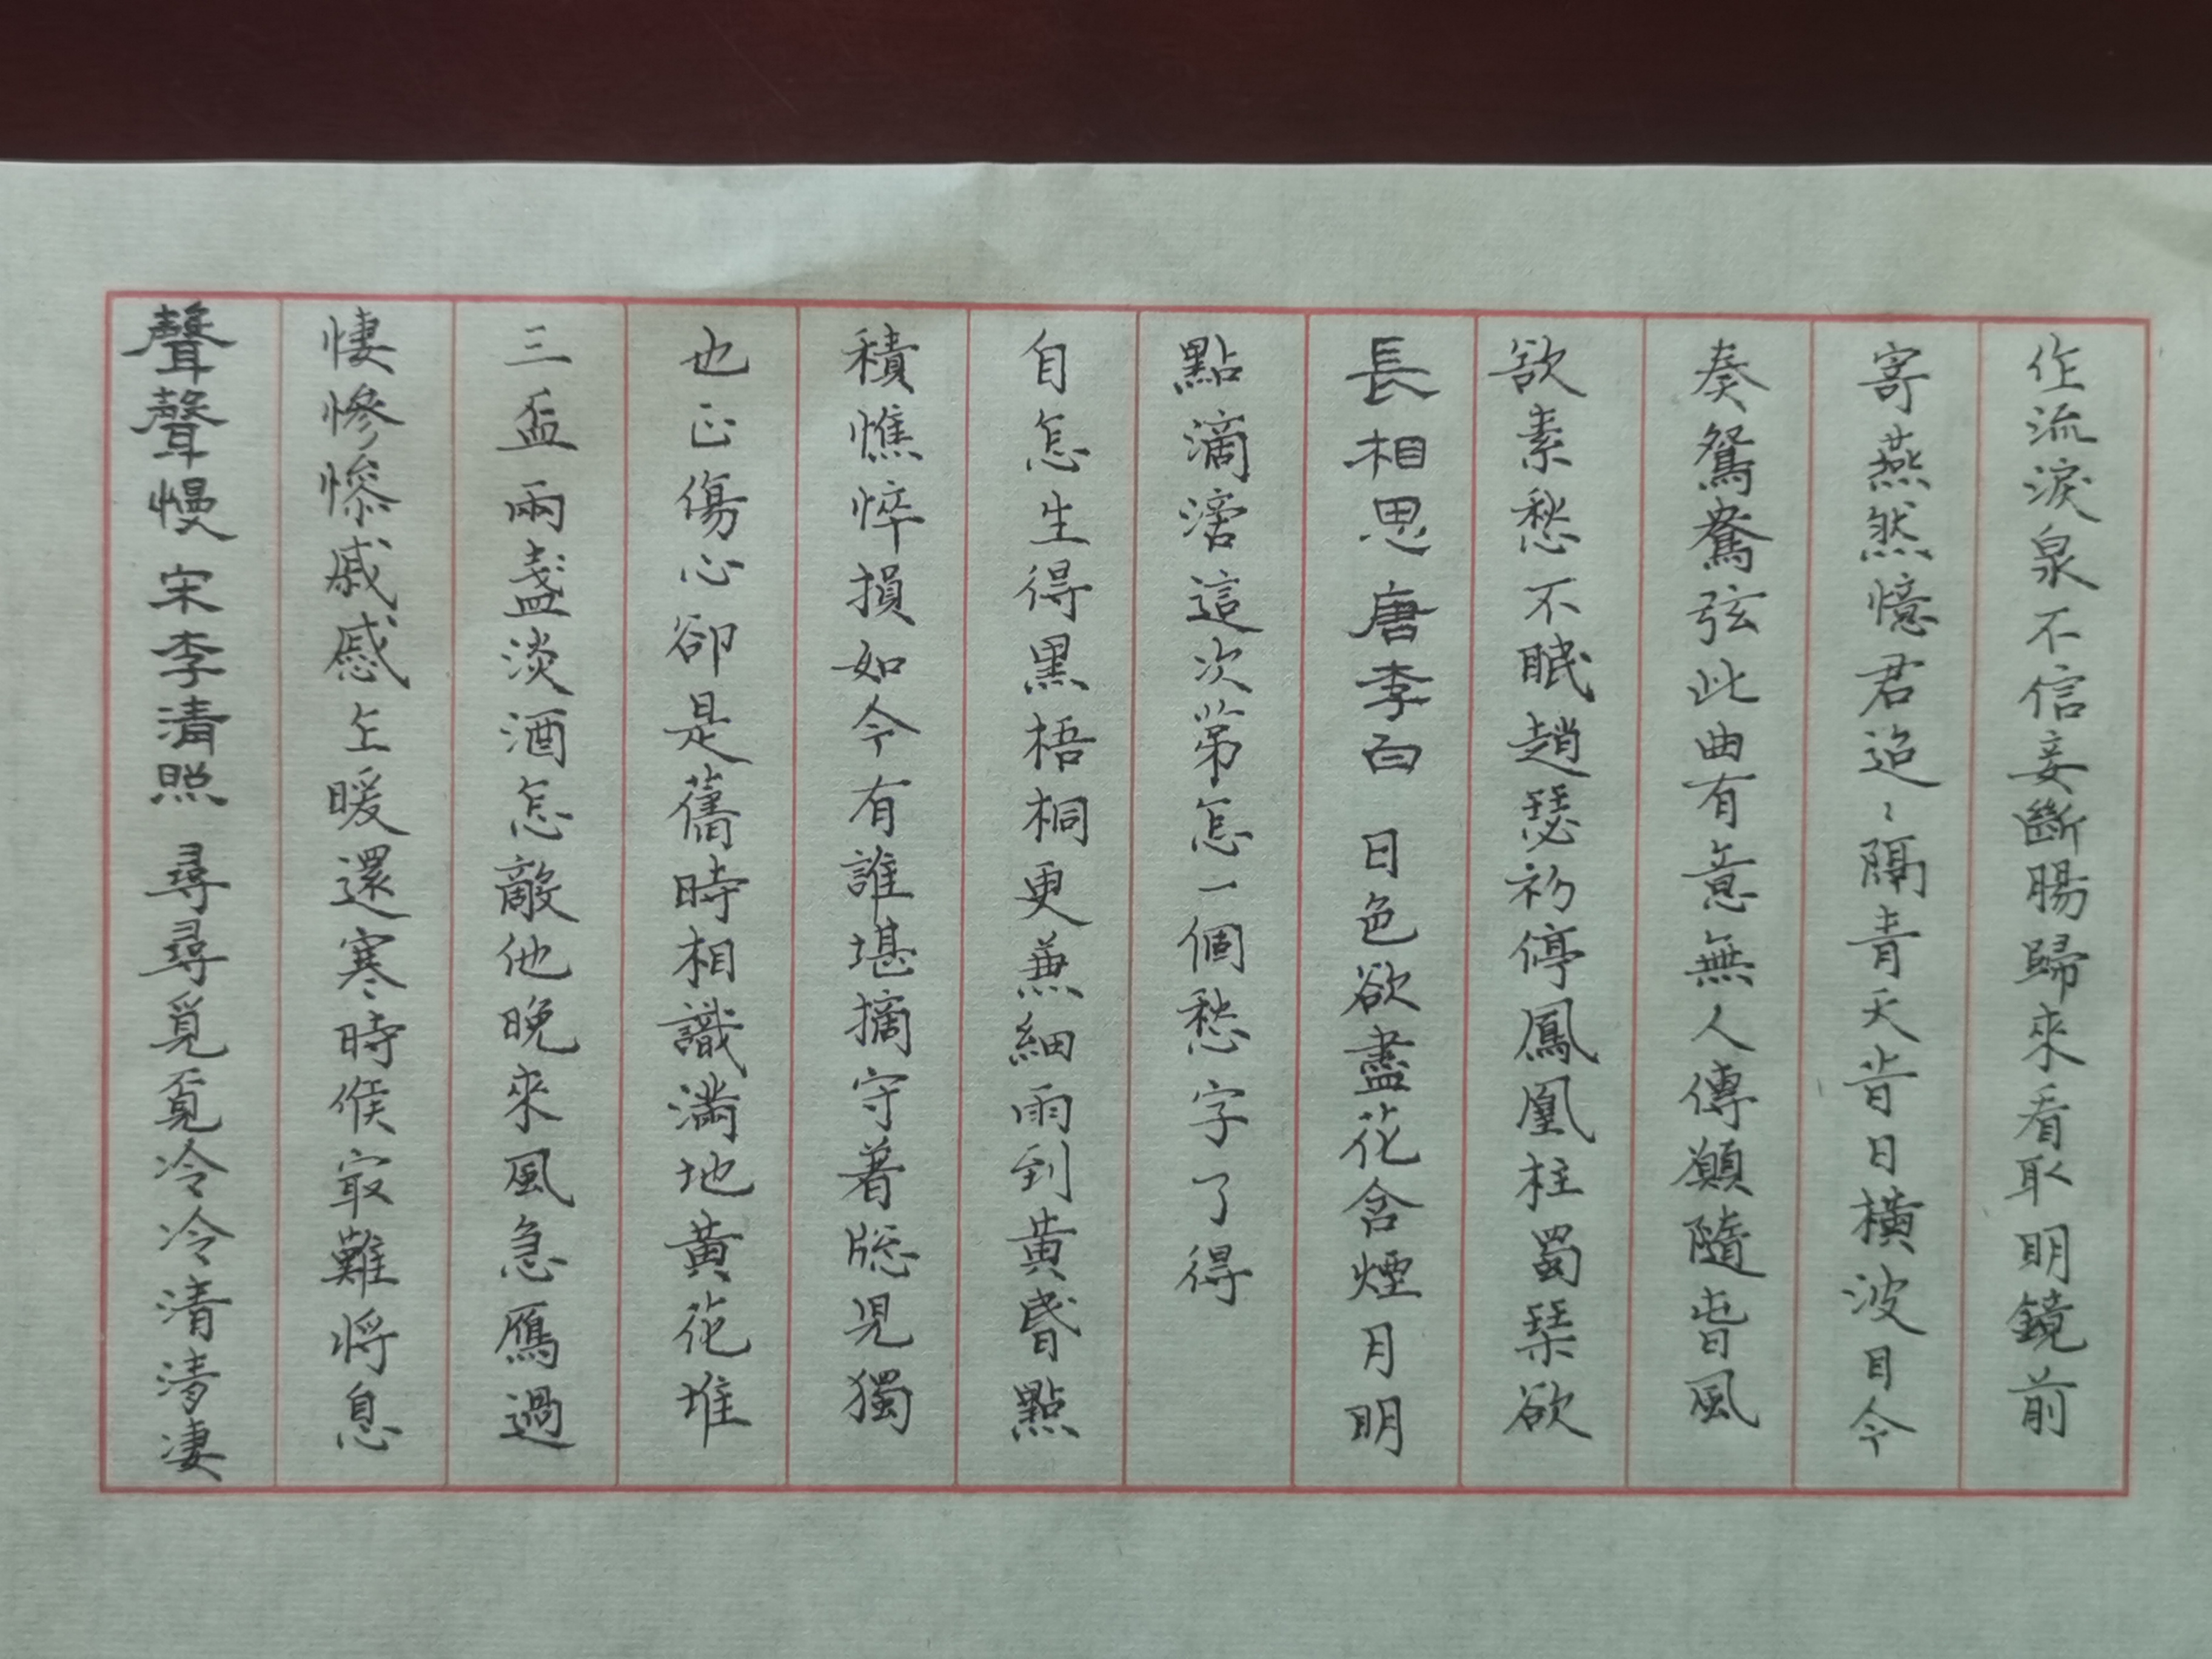 聲聲慢 宋李清照 尋尋覓覓冷冷清清凄
悽慘慘戚慼乍暖還寒時候㝡難將息
三盃兩盞淡酒怎敵他晚來風急鴈過
也正傷心卻是舊時相識滿地黃花堆
積憔悴損如今有誰堪摘守著牎兒獨
自怎生得黑梧桐更兼細雨到黃昬點
點滴滴這次第怎一個愁字了得
長相思 唐李白 日色欲盡花含煙月明
欲素愁不眠趙瑟初停鳳凰柱蜀琹欲
奏鴛鴦弦此曲有意無人傳願隨旾風
寄燕然憶君迢〻隔青天昔日橫波目今
作流淚泉不信妾斷腸歸來看取明鏡前